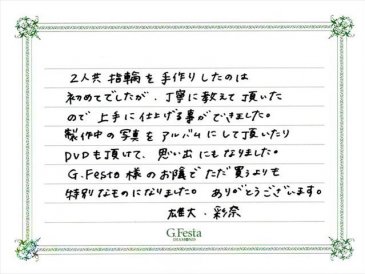 2人共 指輪を手作りしたのは
初めてでしたが、丁寧に教えて頂いた
ので 上手に仕上げる事ができました。
製作中の写真をアルバムにして頂いたり
DVDも頂けて、思い出にもなりました。
G.Festa 様のお陰で ただ買うよりも
特別なものになりました。 ありがとうございます。
雄大・彩奈
G.Festa
DIAMOND